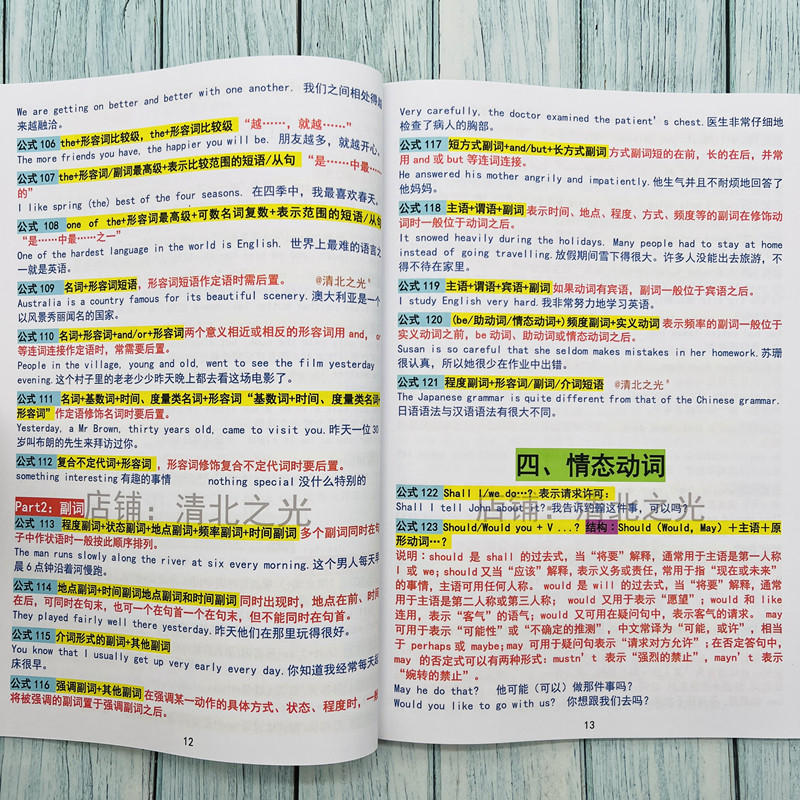 We are getting on better and better with one another. 我们之间相处得越
来越融洽。
公式 106 the+形容词比较级, the+形容词比较级 “越……，就越……”
The more friends you have, the happier you will be. 朋友越多，就越开心。
公式 107 the+形容词/副词最高级+表示比较范围的短语/从句 “是……中最……
的”
I like spring (the) best of the four seasons. 在四季中，我最喜欢春天。
公式 108 one of the+形容词最高级+可数名词复数+表示范围的短语/从句
“是……中最……之一”
One of the hardest language in the world is English. 世界上最难的语言之
一就是英语。
公式 109 名词+形容词短语，形容词短语作定语时需后置。 @清北之光
Australia is a country famous for its beautiful scenery. 澳大利亚是一个
以风景秀丽闻名的国家。
公式 110 名词+形容词+and/or+形容词两个意义相近或相反的形容词用 and, or
等连词连接作定语时，常需要后置。
People in the village, young and old, went to see the film yesterday
evening. 这个村子里的老老少少昨天晚上都去看这场电影了。
公式 111 名词+基数词+时间、度量类名词+形容词 “基数词+时间、度量类名词+
形容词” 作定语修饰名词时要后置。
Yesterday, a Mr Brown, thirty years old, came to visit you. 昨天一位 30
岁叫布朗的先生来拜访过你。
公式 112 复合不定代词+形容词 ，形容词修饰复合不定代词时要后置。
something interesting 有趣的事情 nothing special 没什么特别的
Part2: 副词
店铺：清北之光
公式 113 程度副词+状态副词+地点副词+频率副词+时间副词 多个副词同时在句
子中作状语时一般按此顺序排列。
The man runs slowly along the river at six every morning. 这个男人每天早
晨 6 点钟沿着河慢跑。
公式 114 地点副词+时间副词地点副词和时间副词 同时出现时，地点在前、时间
在后，可同时在句末，也可一个在句首一个在句末，但不能同时在句首。
They played fairly well there yesterday. 昨天他们在那里玩得很好。
公式 115 介词形式的副词+其他副词
You know that I usually get up very early every day. 你知道我经常每天起
床很早。
公式 116 强调副词+其他副词 在强调某一动作的具体方式、状态、程度时，一般
将被强调的副词置于强调副词之后。
12
Very carefully, the doctor examined the patient's chest. 医生非常仔细地
检查了病人的胸部。
公式 117 短方式副词+and/but+长方式副词 方式副词短的在前，长的在后，并常
用 and 或 but 等连词连接。
He answered his mother angrily and impatiently. 他生气并且不耐烦地回答了
他妈妈。
公式 118 主语+谓语+副词 表示时间、地点、程度、方式、频度等的副词在修饰动
词时一般位于动词之后。
It snowed heavily during the holidays. Many people had to stay at home
instead of going travelling. 放假期间雪下得很大。许多人没能出去旅游，不
得不待在家里。
公式 119 主语+谓语+宾语+副词 如果动词有宾语，副词一般位于宾语之后。
I study English very hard. 我非常努力地学习英语。
公式 120 (be/助动词/情态动词+) 频度副词+实义动词 表示频率的副词一般位于
实义动词之前，be 动词、助动词或情态动词之后。
Susan is so careful that she seldom makes mistakes in her homework. 苏珊
很认真，所以她很少在作业中出错。
公式 121 程度副词+形容词/副词/介词短语 @清北之光
The Japanese grammar is quite different from that of the Chinese grammar.
日语语法与汉语语法有很大不同。
四、情态动词
公式 122 Shall I/we do…? 表示请求许可:
Shall I tell John about it? 我告诉约翰这件事，可以吗?
店铺：清北之光
公式 123 Should/Would you + V ...? 结构: Should (Would, May) +主语+原
形动词…?
说明: should 是 shall 的过去式，当 “将要” 解释，通常用于主语是第一人称
I 或 we; should 又当 “应该” 解释，表示义务或责任，常用于指 “现在或未来”
的事情，主语可用任何人称。 would 是 will 的过去式，当 “将要” 解释，通常
用于主语是第二人称或第三人称; would 又用于表示 “愿望”; would 和 like
连用，表示 “客气” 的语气; would 又可用在疑问句中，表示客气的请求。 may
可用于表示 “可能性” 或 “不确定的推测”，中文常译为 “可能，或许”，相当
于 perhaps 或 maybe; may 可用于疑问句表示 “请求对方允许”; 在否定答句中，
may 的否定式可以有两种形式: mustn't 表示 “强烈的禁止”，mayn't 表示
“婉转的禁止”。
May he do that? 他可能（可以）做那件事吗?
Would you like to go with us? 你想跟我们去吗?
13